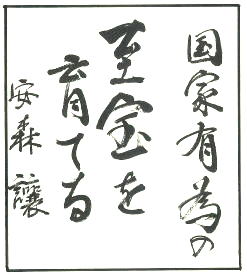 国家有為の
至宝を
育てる
安森譲